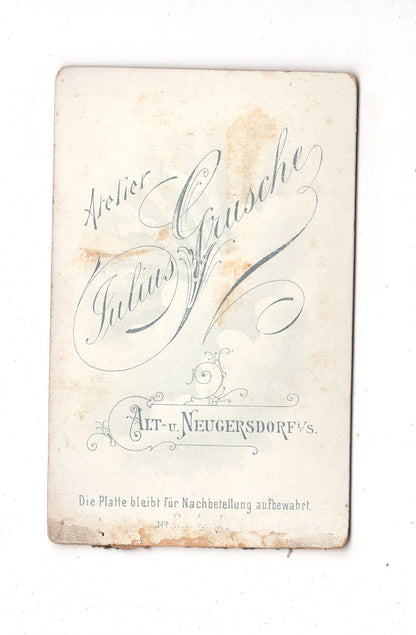 Atelier
Julius Grusche
ALT- u. NEUGERSDORF i/S.
Die Platte bleibt für Nachbestellung aufbewahrt.
No